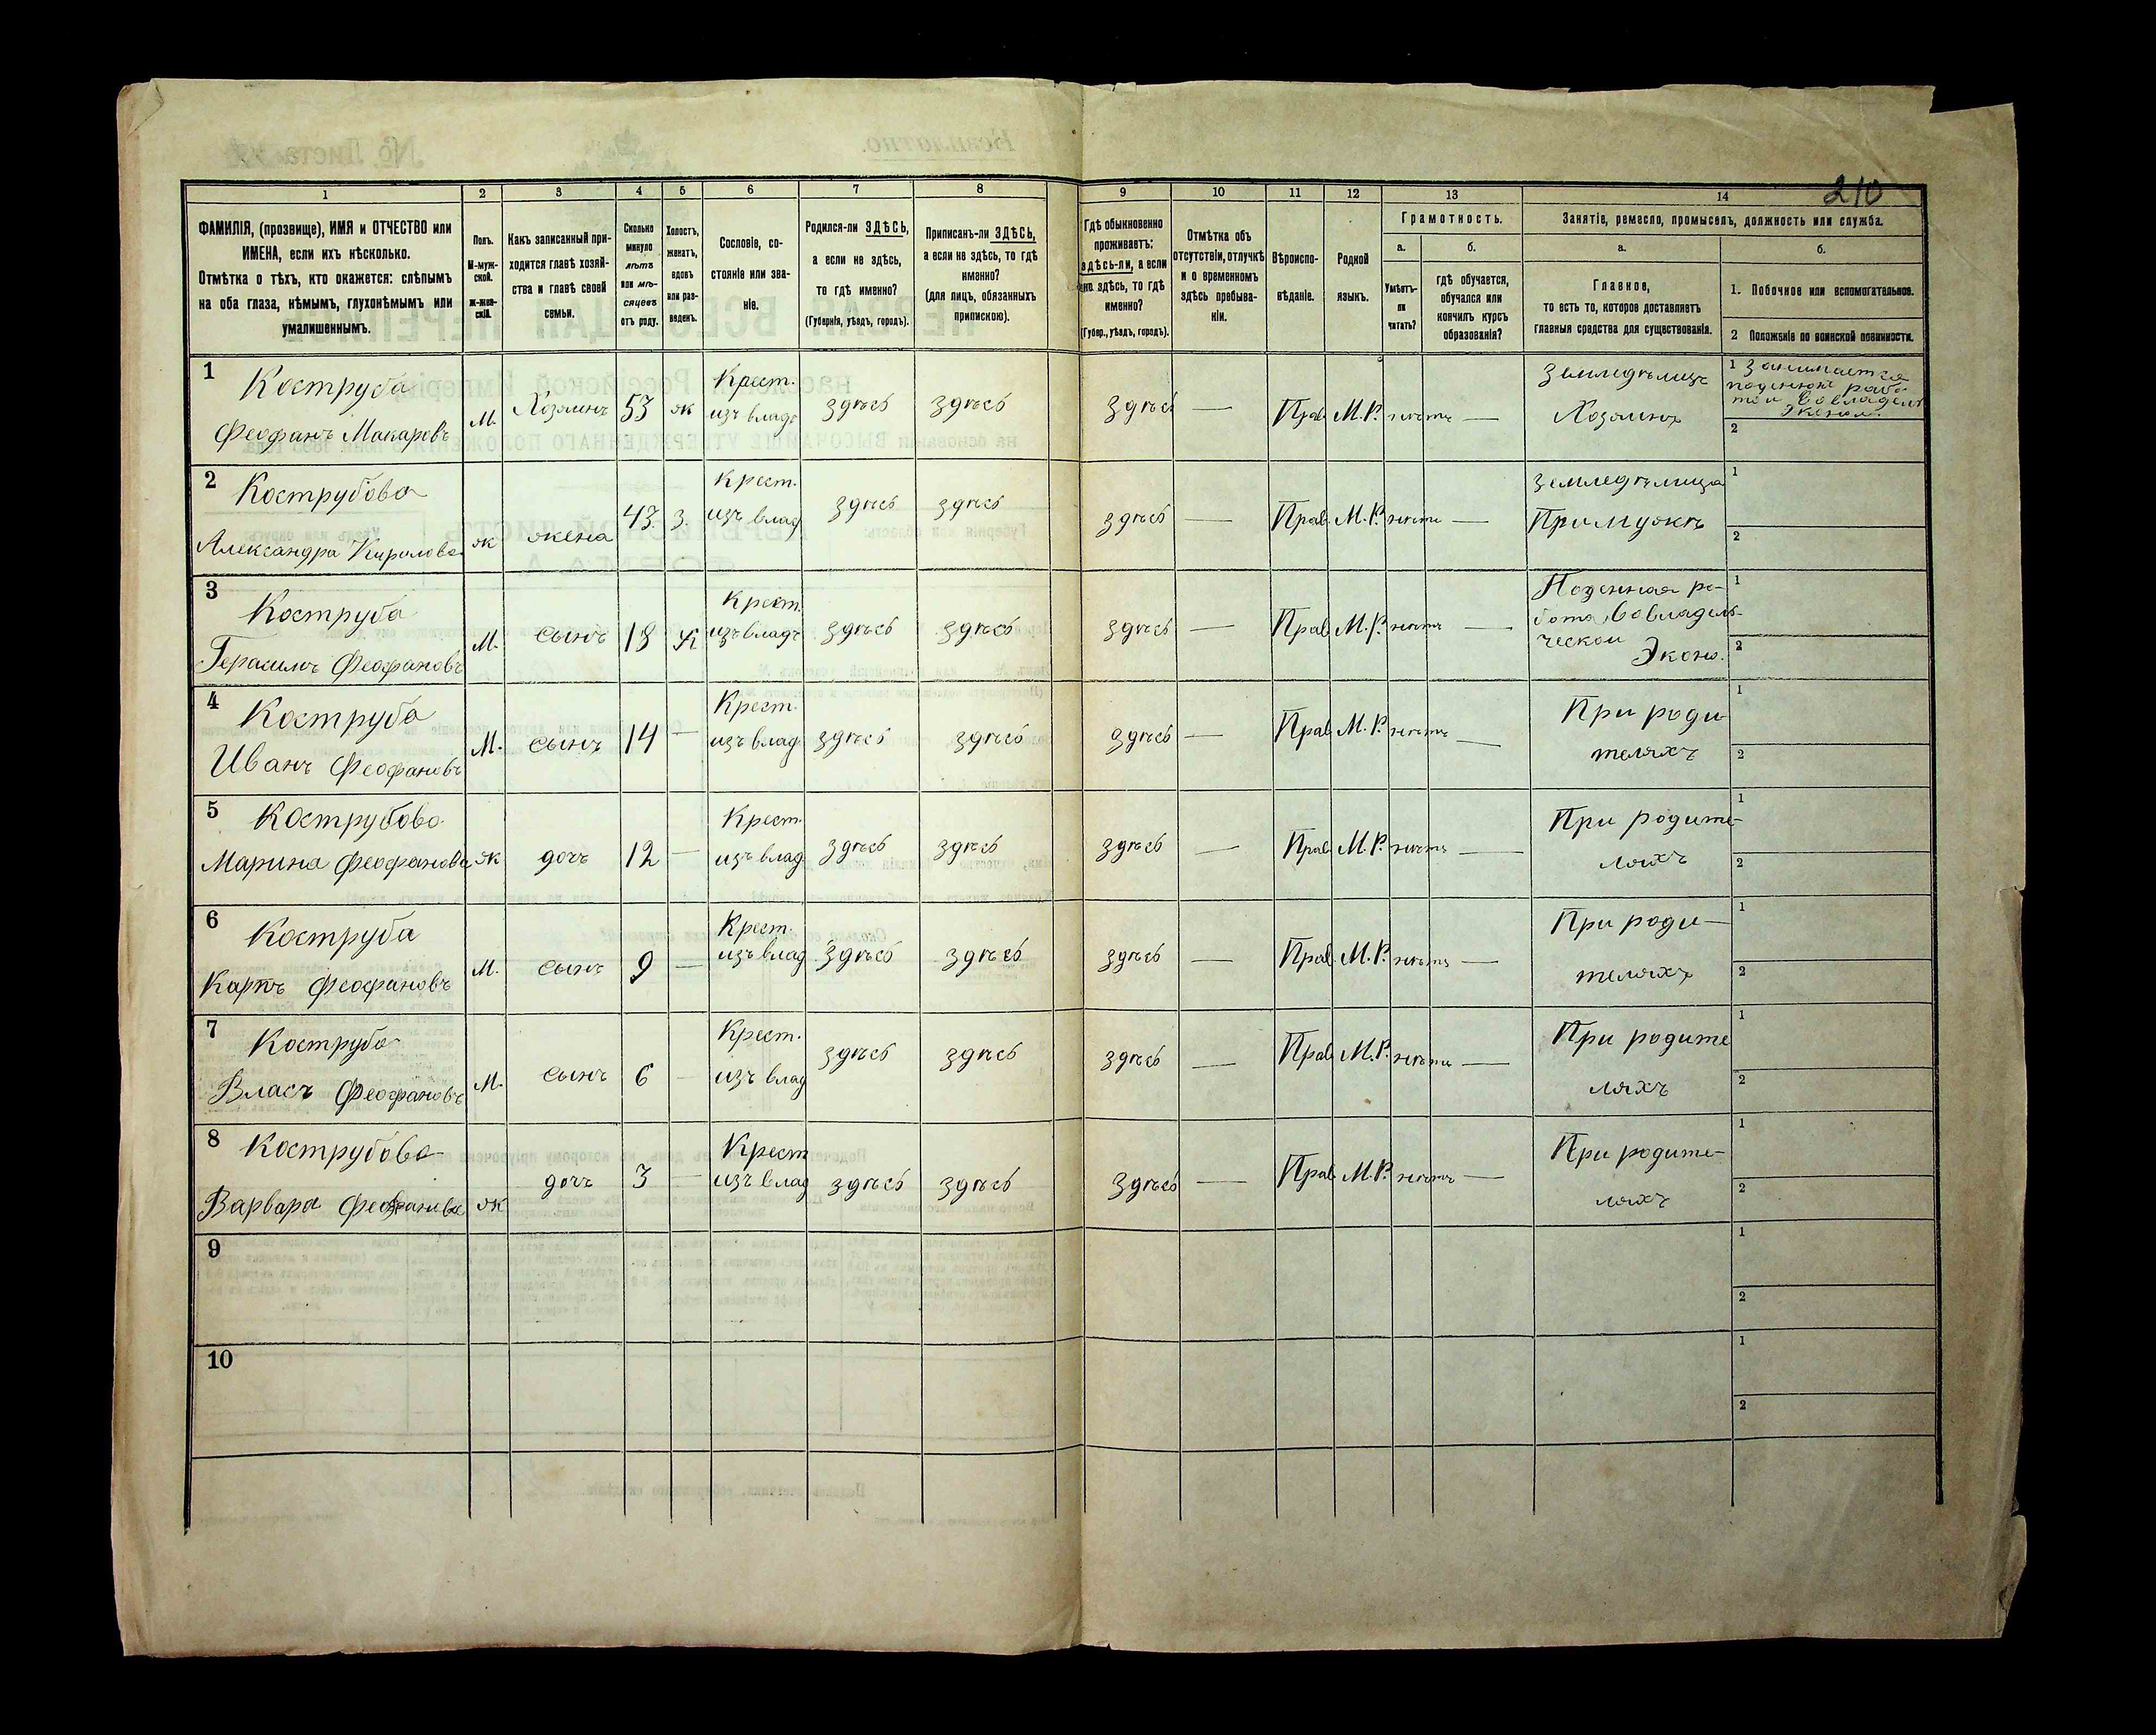 210
1 2 3 4 5 6 7 8 9 10 11 12 13 14
ФАМИЛІЯ, (прозвище), ИМЯ и ОТЧЕСТВО или
ИМЕНА, если ихъ нѣсколько.
Отмѣтка о тѣхъ, кто окажется: слѣпымъ
на оба глаза, нѣмымъ, глухонѣмымъ или
умалишеннымъ.
Полъ.
М-муж-
ской.
Ж-жен-
скій.
Какъ записанный при-
ходится главѣ хозяй-
ства и главѣ своей
семьи.
Сколько
минуло
лѣтъ
или мѣ-
сяцевъ
отъ роду.
Холостъ,
женатъ,
вдовъ
или раз-
веденъ.
Сословіе, со-
стояніе или зва-
ніе.
Родился-ли ЗДѢСЬ,
а если не здѣсь,
то гдѣ именно?
(Губернія, уѣздъ, городъ).
Приписанъ-ли ЗДѢСЬ,
а если не здѣсь, то гдѣ
именно?
(для лицъ, обязанныхъ
припискою).
Гдѣ обыкновенно
проживаетъ:
здѣсь-ли, а если
не здѣсь, то гдѣ
именно?
(Губер., уѣздъ, городъ).
Отмѣтка объ
отсутствіи, отлучкѣ
и о временномъ
здѣсь пребыва-
ніи.
Вѣроиспо-
вѣданіе.
Родной
языкъ.
Грамотность.
а.
Умѣетъ-
ли
читать?
б.
гдѣ обучается,
обучался или
кончилъ курсъ
образованія?
Занятіе, ремесло, промыселъ, должность или служба.
а.
Главное,
то есть то, которое доставляетъ
главныя средства для существованія.
б.
1. Побочное или вспомогательное.
2 Положеніе по воинской повинности.
1 Коструба
Феофанъ Макаровъ
М. Хозяинъ 53 ж
Крест.
изъ влад.
здѣсь здѣсь здѣсь — Прав. М.Р. нѣтъ —
Земледѣлецъ
Хозяинъ
1 Занимается
поденной рабо
той во владѣл
Эконом.
2
2 Кострубова
Александра Кирилова
ж жена 43. З.
Крест.
изъ влад
здѣсь здѣсь здѣсь — Прав. М.Р. нѣтъ —
Земледѣлица
При мужѣ
1
2
3 Коструба
Герасимъ Феофановъ
М. сынъ 18 Х
Крест.
изъ влад
здѣсь здѣсь здѣсь — Прав М.Р. нѣтъ —
Поденная ра-
бота во владѣль-
ческой
Эконо.
1
2
4 Коструба
Иванъ Феофановъ
М. сынъ 14 —
Крест.
изъ влад
здѣсь здѣсь здѣсь — Прав М.Р. нѣтъ —
При роди
теляхъ
1
2
5 Кострубова
Марина Феофанова
ж дочь 12 —
Крест.
изъ влад
здѣсь здѣсь здѣсь — Прав М.Р. нѣтъ —
При родите-
ляхъ
1
2
6 Коструба
Карпъ Феофановъ
М. сынъ 9 —
Крест.
изъ влад
здѣсь здѣсь здѣсь — Прав. М.Р. нѣтъ —
При роди-
теляхъ
1
2
7 Коструба
Власъ Феофановъ
М. сынъ 6 —
Крест.
изъ влад
здѣсь здѣсь здѣсь — Прав М.Р. нѣтъ —
При родите
ляхъ
1
2
8 Кострубова
Варвара Феофанова
ж дочь 3 —
Крест
изъ влад
здѣсь здѣсь здѣсь — Прав. М.Р. нѣтъ —
При родите-
ляхъ
1
2
9
1
2
10
1
2